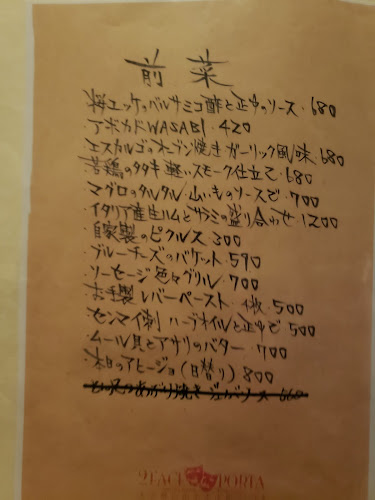 前菜
・桜ユッケ バルサミコ酢と正ゆのソース・680
・アボカドWASABI・420
・エスカルゴのオーブン焼き ガーリック風味 680
・若鶏のタタキ 軽いスモーク仕立て・680
・マグロのタルタル・山いものソースで・700
・イタリア産生ハムとサラミの盛り合わせ・1200
・自家製のピクルス・300
・ブルーチーズのバケット・590
・ソーセージ色々グリル・700
・お手製レバーペースト・1枚・500
・センマイ刺 ハーブオイルと正ゆで 500
・ムール貝とアサリのバター・700
・本日のアヒージョ(日替り) 800
660
2FACE PORTA